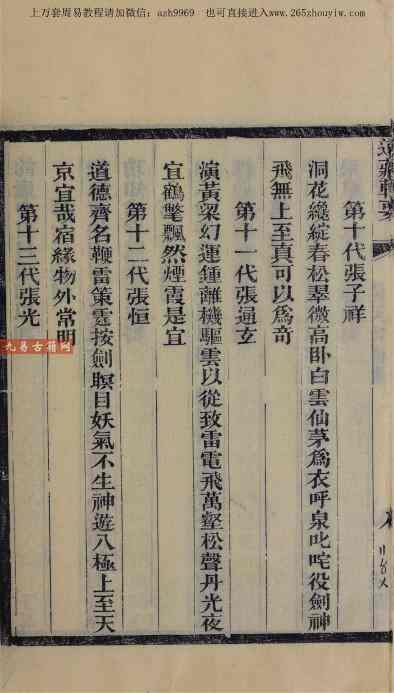 上万套周易教程请加微信：azh9969　也可直接进入www.265zhouyiw.com
道藏輯要
第十代張子祥
洞花纔綻春松翠微高卧白雲仙茅爲衣呼泉叱咤役劍神
飛無上至真可以爲奇
第十一代張通玄
演黃粱幻運鍾離機驅雲以從致雷電飛萬壑松聲丹光夜
宜鶴氅飄然煙霞是宜
第十二代張恒
道德齊名鞭雷策霆按劍瞑目妖氣不生神遊八極上至天
京宜哉宿緣物外常明
第十三代張光
九易古籍网